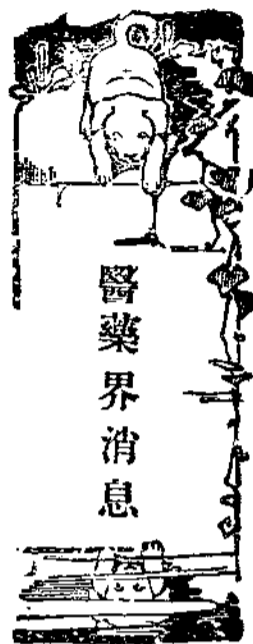 醫藥界消息